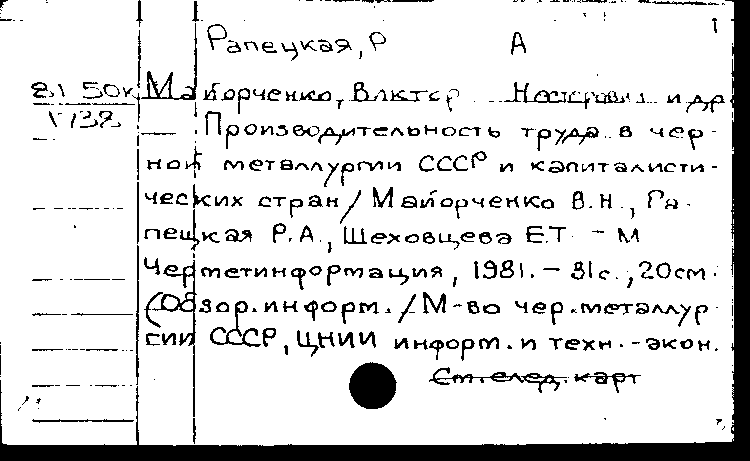 1
Рапецкая, Р А
81 50к Майорченко, Виктор Нестерович и др
— Производительность труда в чер-
ной металлургии СССР и капиталисти-
ческих стран / Майорченко В.Н., Ра-
пецкая Р.А., Шеховцева Е.Т. - М
Черметинформация, 1981. - 31с., 20см.
(Обзор. информ. / М-во чер. металлур
гии СССР, ЦНИИ информ. и техн.-экон.
См. след. карт